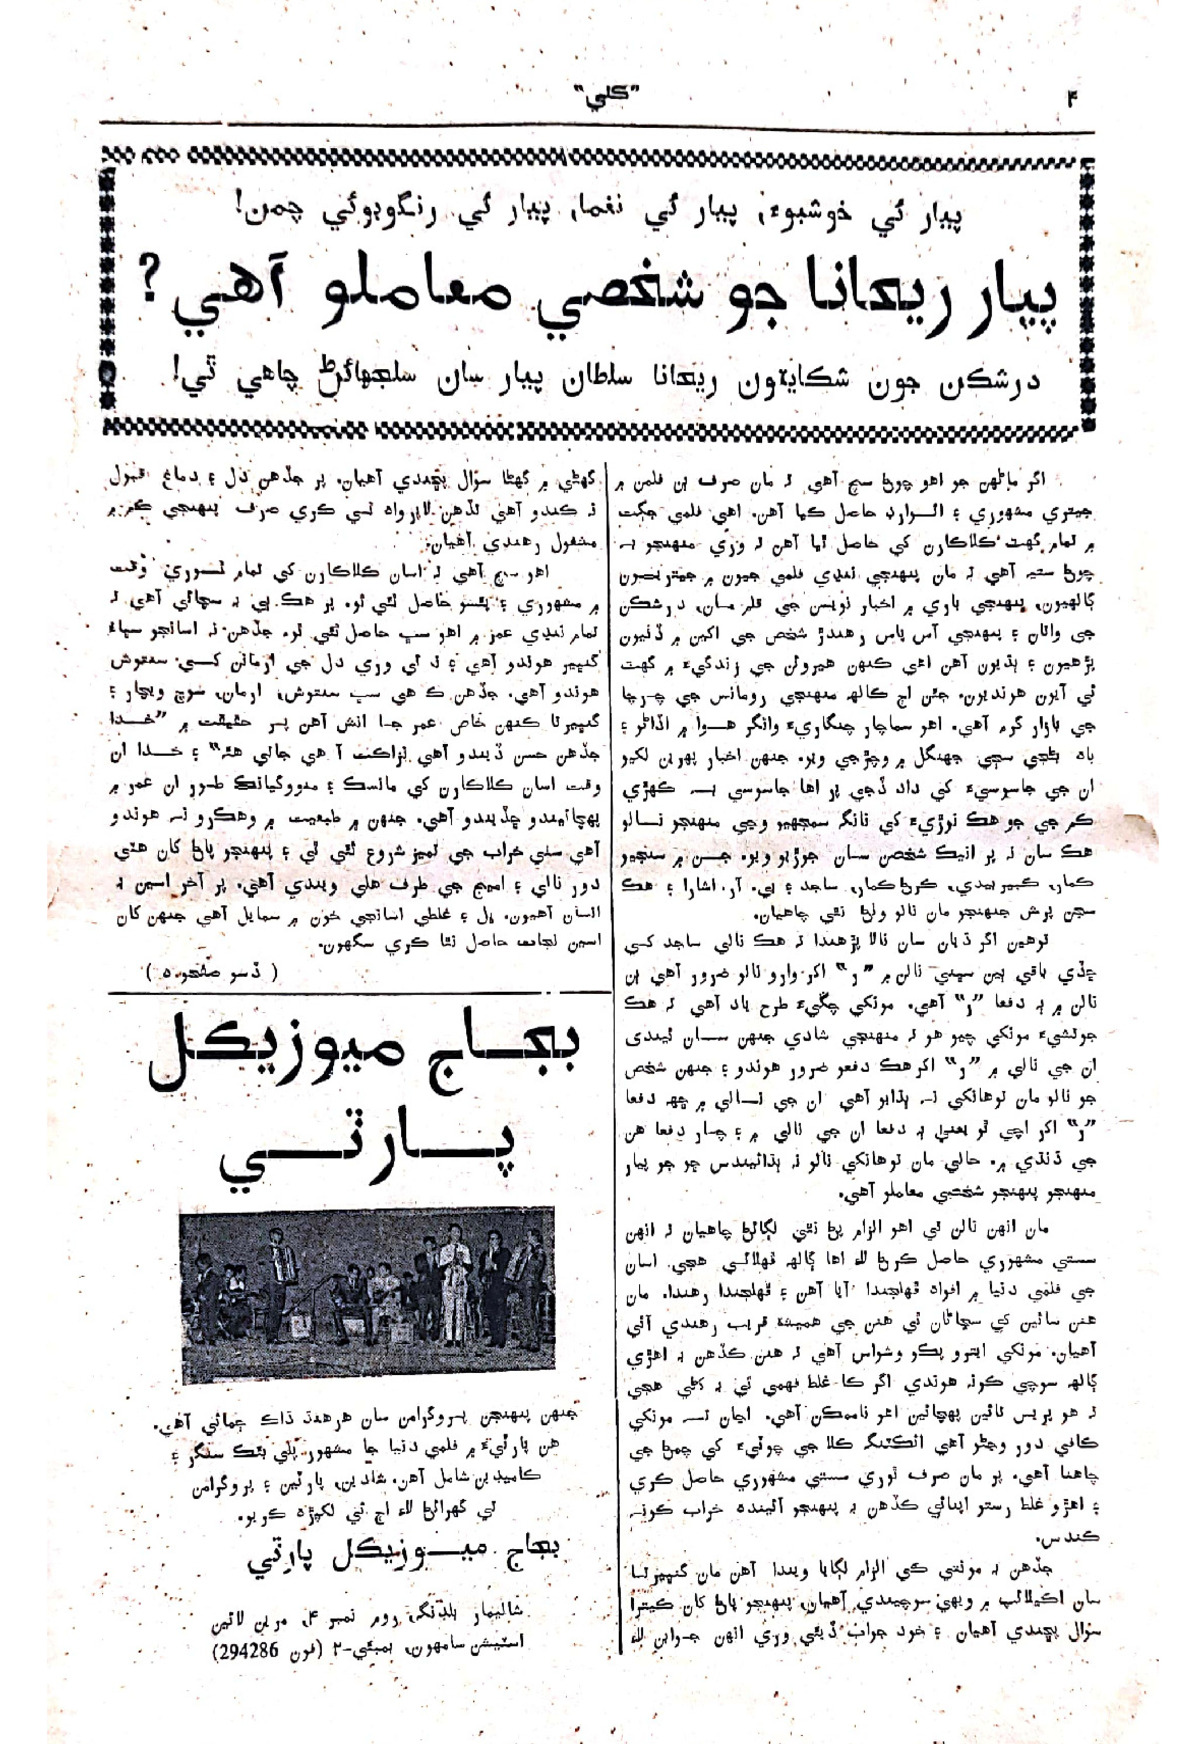 ۴
”ڪلي“
پيار ئي خوشبوءِ، پيار ئي نغما، پيار ئي رنگوبوئي چمن!
پيار ريحانا جو شخصي معاملو آهي؟
درشڪن جون شڪايتون ريحانا سلطان پيار سان سلجهائڻ چاهي ٿي!
اگر ماڻهن جو اهو چوڻ سچ آهي تہ مان صرف ٻن فلمن ۾
جيتري مشهوري ۽ ائوارڊ حاصل ڪيا آهن. اهي فلمي جڳت
۾ تمام گهٽ ڪلاڪارن کي حاصل ٿيا آهن تہ وري منهنجو بہ
چوڻ ستيہ آهي تہ مان پنهنجي ننڍي فلمي جيون ۾ جيتريون
ڳالهيون، پنهنجي باري ۾ اخبار نويسن جي قلم مان، درشڪن
جي واتان ۽ پنهنجي آس پاس رهندڙ شخص جي اکين ۾ ڏٺيون
پڙهيون ۽ ٻڌيون آهن اهي ڪنهن هيروئن جي زندگيءَ ۾ گهٽ
ئي آيون هونديون. جئن اڄ ڪالهہ منهنجي رومانس جي چرچا
جي بازار گرم آهي. اهو سماچار چنگاريءَ وانگر هوا ۾ اڏاڻو ۽
باهہ ٻڻجي سڄي جهنگل ۾ وچڙجي ويو. جنهن اخبار پهرين لکيو
ان جي جاسوسيءَ کي داد ڏجي پر اها جاسوسي بہ ڪهڙي
ڪم جي جو هڪ نوڙيءَ کي نانگ سمجهيو وڃي منهنجو نالو
هڪ سان نہ پر انيڪ شخصن سان جوڙيو ويو. جن ۾ سنجيو
ڪمار، ڪبير بيدي، ڪرڻ ڪمار، ساجد ۽ بي. آر. اشارا ۽ هڪ
سڄڻ پرش جنهنجو مان نالو وٺڻ نٿي چاهيان.
توهين اگر ڌيان سان نالا پڙهندا تہ هڪ نالي ساجد کي
ڇڏي باقي ٻين سڀني نالن ۾ ”ر“ اکر وارو نالو ضرور آهي ٻن
نالن ۾ ٻہ دفعا ”ر“ آهي. مونکي چڱيءَ طرح ياد آهي تہ هڪ
جوتشيءَ مونکي چيو هو تہ منهنجي شادي جنهن سان ٿيندي
ان جي نالي ۾ ”ر“ اکر هڪ دفعو ضرور هوندو ۽ جنهن شخص
جو نالو مان توهانکي نہ ٻڌايو آهي ان جي نالي ۾ ڇهہ دفعا
”ر“ اکر اچي ٿو يعني ٻہ دفعا ان جي نالي ۾ ۽ چار دفعا هن
جي ڌنڌي ۾. حالي مان توهانکي نالو نہ ٻڌائيندس ڇو جو پيار
منهنجو پنهنجو شخصي معاملو آهي.
مان انهن نالن تي اهو الزام پڻ نٿي لڳائڻ چاهيان تہ انهن
سستي مشهوري حاصل ڪرڻ لاءِ اها ڳالهہ ڦهلائي هجي. اسان
جي فلمي دنيا ۾ افواهہ ڦهلجندا آيا آهن ۽ ڦهلجندا رهندا. مان
هنن ساٿين کي سڃاڻان ٿي هنن جي هميشہ قريب رهندي آئي
آهيان. مونکي ايترو پڪو وشواس آهي تہ هنن ڪڏهن بہ اهڙي
ڳالهہ سوچي ڪونہ هوندي اگر ڪا غلط فهمي ٿي بہ هجي
تہ هو پريس تائين پهچائين اهو ناممڪن آهي. اڃان تہ مونکي
ڪافي دور وڃڻو آهي ائڪٽنگ ڪلا جي چوٽيءَ کي چمڻ جي
چاهنا آهي. پر مان صرف ٿوري سستي مشهوري حاصل ڪري
۽ اهڙو غلط رستو اپنائي ڪڏهن بہ پنهنجو آئينده خراب ڪونہ
ڪندس.
جڏهن بہ مونتي ڪي الزام لڳايا ويندا آهن مان گنڀيرتا
سان اڪيلائپ ۾ ويهي سوچيندي آهيان، پنهنجو پاڻ کان ڪيترا
سوال پڇندي آهيان ۽ خود جواب ڏيئي وري انهن جوابن لاءِ
گهڻي ۾ گهڻا سوال پڇندي آهيان. پر جڏهن دل ۽ دماغ قبول
نہ ڪندو آهي تڏهن لاپرواهہ ٿي ڪري صرف پنهنجي ڪم ۾
مشغول رهندي آهيان.
اهو سچ آهي تہ اسان ڪلاڪارن کي تمام ٿوري وقت
۾ مشهوري ۽ پئسو حاصل ٿئي ٿو. پر هڪ ٻي بہ سچائي آهي تہ
تمام ننڍي عمر ۾ اهو سڀ حاصل ٿئي ٿو. جڏهن نہ اسانجو سڀاءُ
گنڀير هوندو آهي ۽ نہ ئي وري دل جي ارمانن کي سنتوش
هوندو آهي. جڏهن ڪ هي سڀ سنتوش، ارمان، سوچ ويچار ۽
گنڀيرتا ڪنهن خاص عمر جا انش آهن پر حقيقت ۾ ”خدا
جڏهن حسن ڏيندو آهي نزاڪت آ هي جاتي هئہ“ ۽ خدا ان
وقت اسان ڪلاڪارن کي مانسڪ ۽ منووگيانڪ طور ان عمر ۾
پهچائيندو ڇڏيندو آهي. جنهن ۾ طبيعت ۾ وهڪرو نہ هوندو
آهي سٺي خراب جي تميز شروع ٿئي ٿي ۽ پنهنجو پاڻ کان هٽي
دور نالي ۽ اميج جي طرف هلي ويندي آهي. پر آخر اسين بہ
انسان آهيون. ڀل ۽ غلطي اسانجي خون ۾ سمايل آهي جنهن کان
اسين نجات حاصل نٿا ڪري سگهون.
( ڏسو صفحو ۵ )
بجاج ميوزيڪل
پارٽي
جنهن پنهنجن پروگرامن سان هر هنڌ ڌاڪ ڄمائي آهي.
هن پارٽيءَ ۾ فلمي دنيا جا مشهور پلي بئڪ سنگر ۽
ڪاميڊين شامل آهن. شادين، پارٽين ۽ پروگرامن
تي گهرائڻ لاءِ اڄ ئي لکپڙهہ ڪريو.
بجاج ميوزيڪل پارٽي
شاليمار بلڊنگ، روم نمبر ۴، مرين لائين
اسٽيشن سامهون، بمبئي-۲ (فون 294286)